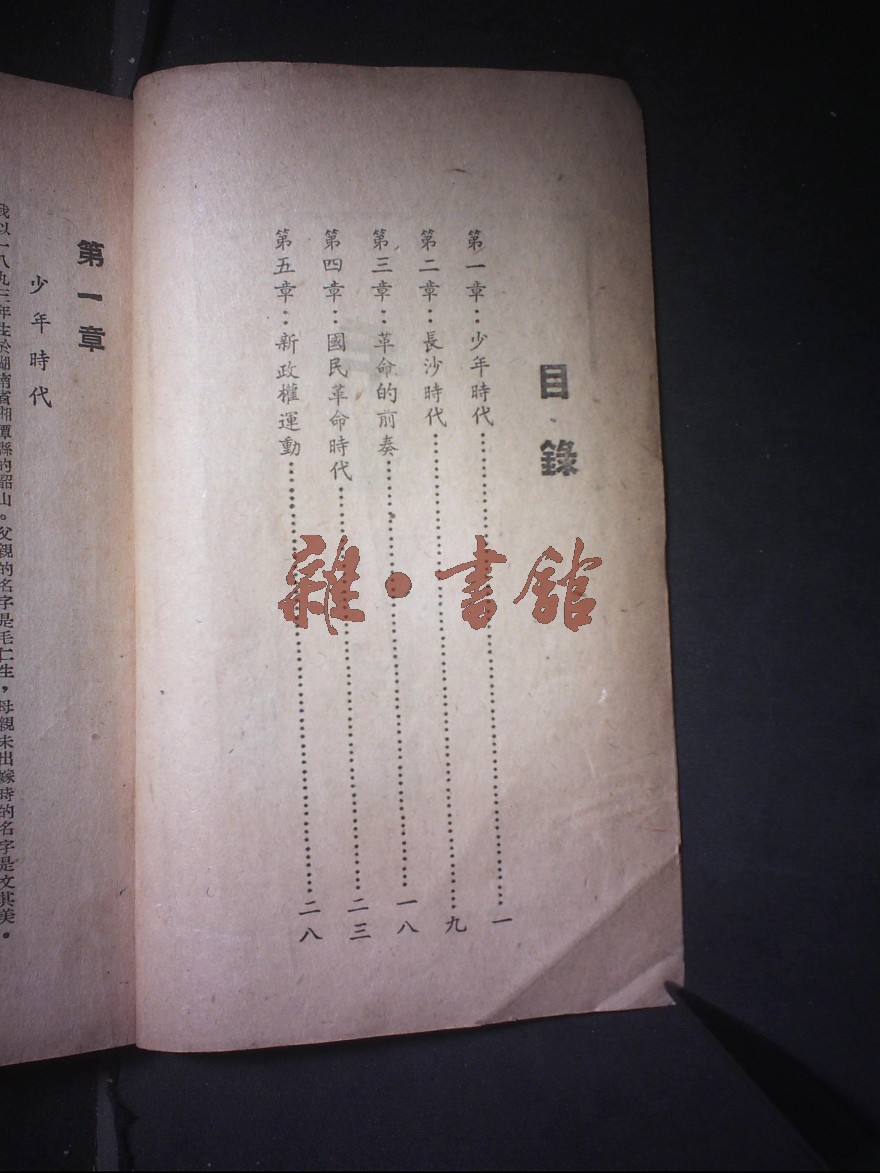 目錄
第一章：少年時代……一
第二章：長沙時代……九
第三章：革命的前奏……一八
第四章：國民革命時代……二三
第五章：新政權運動……二八
雜·書館
第一章
少年時代
我以一八九三年生於湖南省湘潭縣的韶山。父親的名字是毛仁生，母親未出嫁時的名字是文其美。